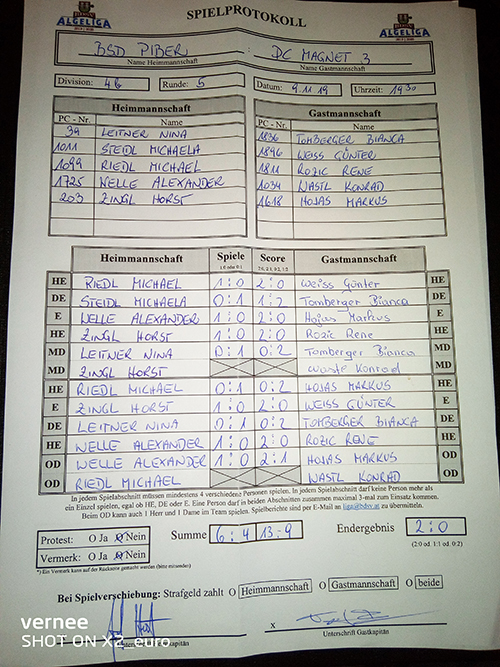 ALGELIGA
SPIELPROTOKOLL
ALGELIGA
BSD PIBER : DC MAGNET 3
Name Heimmannschaft Name Gastmannschaft
Division: 4b Runde: 5 Datum: 9.11.19 Uhrzeit: 1930
Heimmannschaft
PC - Nr. Name
39 LEITNER NINA
1011 STEIDL MICHAELA
1099 RIEDL MICHAEL
1725 WELLE ALEXANDER
203 ZINGL HORST
Gastmannschaft
PC - Nr. Name
1836 TOMBERGER BIANCA
1896 WEISS GÜNTER
1811 ROZIC RENE
1034 WASTL KONRAD
1618 HOJAS MARKUS
Heimmannschaft Spiele Score Gastmannschaft
1:0 oder 0:1 2:0, 2:1, 0:2, 1:2
HE RIEDL MICHAEL 1:0 2:0 Weiss Günter HE
DE STEIDL MICHAELA 0:1 1:2 Tomberger Bianca DE
E WELLE ALEXANDER 1:0 2:0 Hojas Markus E
HE ZINGL HORST 1:0 2:0 Rozic Rene HE
MD LEITNER NINA 0:1 0:2 Tomberger Bianca MD
MD ZINGL HORST Wastl Konrad MD
HE RIEDL MICHAEL 0:1 0:2 HOJAS MARKUS HE
E ZINGL HORST 1:0 2:0 WEISS GÜNTER E
DE LEITNER NINA 0:1 0:2 TOMBERGER BIANCA DE
HE WELLE ALEXANDER 1:0 2:0 ROZIC RENE HE
OD WELLE ALEXANDER 1:0 2:1 HOJAS MARKUS OD
OD RIEDL MICHAEL WASTL KONRAD OD
In jedem Spielabschnitt müssen mindestens 4 verschiedene Personen spielen. In jedem Spielabschnitt darf keine Person mehr als
ein Einzel spielen, egal ob HE, DE oder E. Eine Person darf in beiden Abschnitten zusammen maximal 3-mal zum Einsatz kommen.
Beim OD kann auch 1 Herr und 1 Dame im Team spielen. Spielberichte sind per E-Mail an liga@bdsv.at zu übermitteln.
Protest: O Ja O Nein Summe 6:4 13:9 Endergebnis 2:0
Vermerk: O Ja O Nein (2:0 od. 1:1 od. 0:2)
*) Ein Vermerk kann auf der Rückseite gemacht werden (bitte mitsenden)
Bei Spielverschiebung: Strafgeld zahlt O Heimmannschaft O Gastmannschaft O beide
x
Unterschrift Gastkapitän
vernee
SHOT ON X2_euro